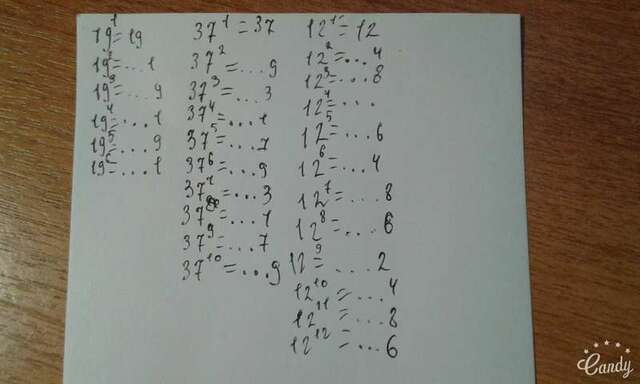 19¹=19
19²=...1
19³=...9
19⁴=...1
19⁵=...9
19⁶=...1
37¹=37
37²=...9
37³=...3
37⁴=...1
37⁵=...7
37⁶=...9
37⁷=...3
37⁸=...1
37⁹=...7
37¹⁰=...9
12¹=12
12²=...4
12³=...8
12⁴=...
12⁵=...6
12⁶=...4
12⁷=...8
12⁸=...6
12⁹=...2
12¹⁰=...4
12¹¹=...8
12¹²=...6
Candy